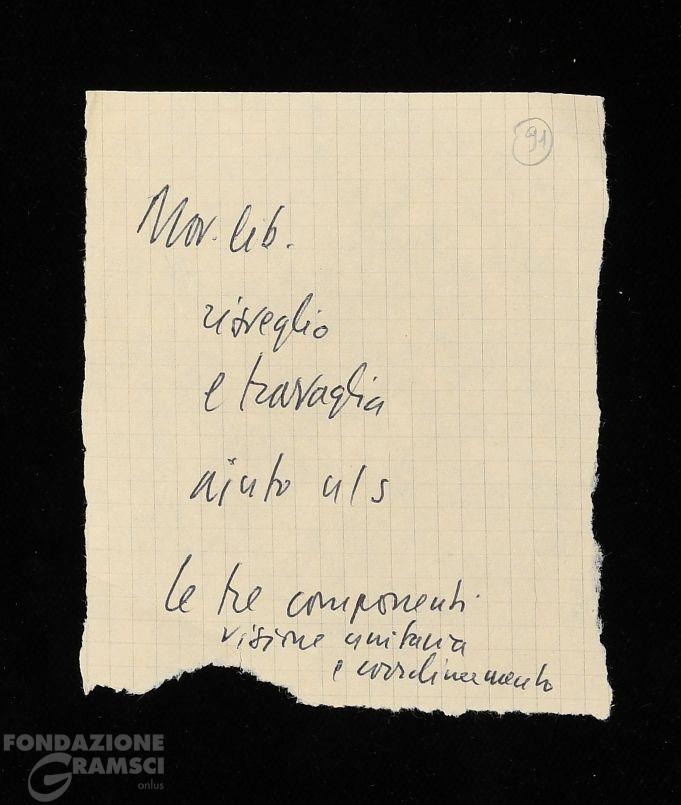 91
Mov. lib.
risveglio
e travaglia
aiuto n/s
le tre componenti
visione unitaria
e coordinamento
FONDAZIONE
GRAMSCI
onlus